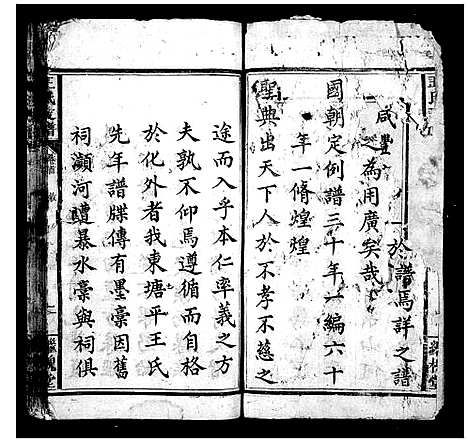 於譜焉詳之譜
之為用廣矣哉
咸豐
國朝定例譜三十年一編六十
年一脩煌煌
聖典出天下人於不孝不慈之
途而入乎本仁率義之方
夫孰不仰焉遵循而自格
於化外者我東塘平王氏
先年譜牒傳有墨稾因舊
祠瀕河遭暴水稾與祠俱